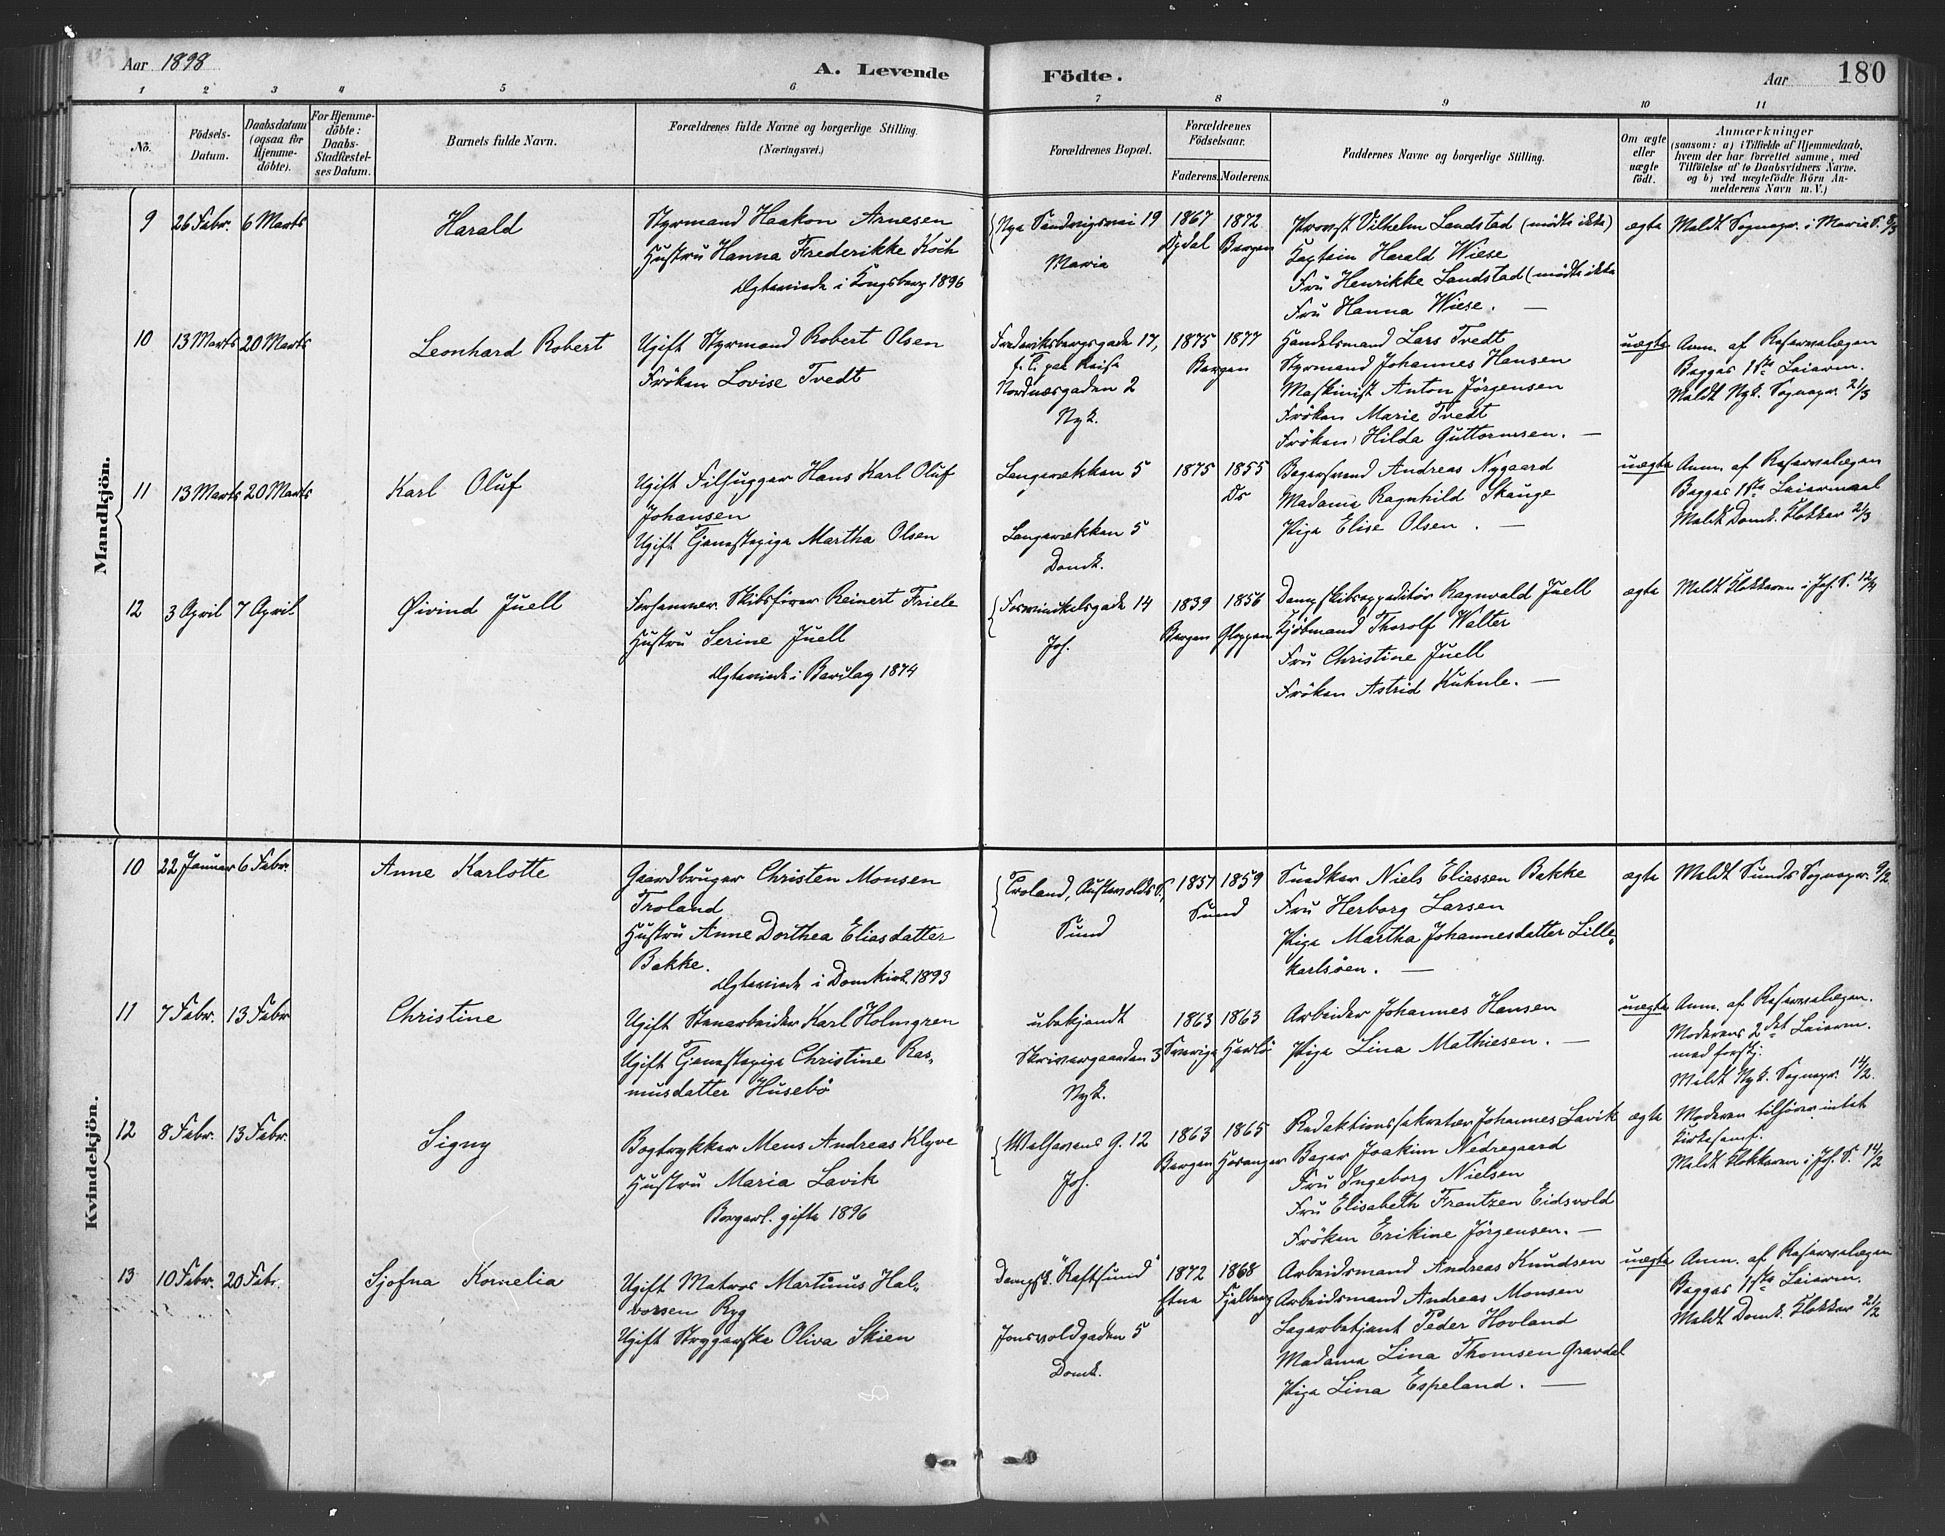 Aar 1898
A. Levende Födte.
Aar
180
1 2 3 4 5 6 7 8 9 10 11
No.
Födsels-Datum.
Daabsdatum (ogsaa for Hjemme-döbte).
For Hjemme-döbte: Daabs-Stadfæstel-ses Datum.
Barnets fulde Navn.
Forældrenes fulde Navne og borgerlige Stilling.
(Næringsvei.)
Forældrenes Bopæl.
Forældrenes Födselsaar.
Faderens. Moderens.
Faddernes Navne og borgerlige Stilling.
Om ægte eller uægte födt.
Anmærkninger
(saasom: a) i Tilfælde af Hjemmedaab,
hvem der har forrettet samme, med
Tilföielse af to Daabsvidners Navne.
og b) ved uægtefödte Börn An-
melderens Navn m. V.)
Mandkjön.
9 26 Febr. 6 Marts
Harald
Styrmand Haakon Arnesen
Hustru Hanna Frederikke Koch
Ægteviede i Kongsberg 1896
Nye Sandvigsvei 19
Maria
1867 1872
Bergen
Provst Vilhelm Landstad (mödte ikke)
Kaptein Harald Wiese
Fru Henrikke Landstad (mödte ikke
Fru Hanna Wiese. —
ægte
Meldt Sognepr. i Maria S. 8/3
10 13 Marts 20 Marts
Leonhard Robert
Ugift Styrmand Robert Olsen
Fröken Lovise Tvedt
Frederiksbergsgade 17,
f. T. paa Reise
Nordnæsgaden 2
Nyk.
1875 1877
Bergen
Handelsmand Lars Tvedt
Styrmand Johannes Hansen
Maskinist Anton Jörgensen
Fröken Marie Tvedt
Fröken Hilda Guttormsen. —
uægte
Anm. af Reservelægen
Begges 1ste Leierm.
Meldt Nyk. Sognepr. 21/3
11 13 Marts 20 Marts
Karl Oluf
Ugift Filhugger Hans Karl Oluf
Johansen
Ugift Tjenestepige Martha Olsen
Langerækken 5
Langerækken 5
Domk.
1875 1855
Do
Bagersvend Andreas Nygaard
Madame Ragnhild Skauge
Pige Elise Olsen. —
uægte
Anm. af Reservelægen
Begges 1ste Leiermaal
Meldt Domk. Klokker 21/3
12 3 April 7 April
Øivind Juell
Forhenvær. Skibsförer Reinert Friele
Hustru Serine Juell
Ægteviede i 1874
14
Joh.
1839 1856
Bergen Gloppen
Dampskibsexpeditör Ragnvald Juell
Kjöbmand Thorolf Walter
Fru Christine Juell
Fröken Astrid Kuhnle. —
ægte
Meldt Klokkeren i Joh. S. 12/4
Kvindekjön.
10 22 Januar 6 Febr.
Anne Karlotte
Gaardbruger Christen Monsen
Troland
Hustru Anne Dorthea Eliasdatter
Bakke.
Ægteviede i Domkirk. 1893
Troland, Austevolds S.,
Sund
1857 1859
Sund
Snedker Niels Eliassen Bakke
Fru Herborg Larsen
Pige Martha Johannesdatter Lille-
karlsöen. —
ægte
Meldt Sunds Sognepr. 9/2
11 7 Febr. 13 Febr
Christine
Ugift Stenarbeider Karl Holmgren
Ugift Tjenestepige Christine Ras-
musdatter Husebö
ubekjendt
Skrivergaarden 3
Nyk.
1863 1863
Sverige Herlö
Arbeider Johannes Hansen
Pige Lina Mathiesen. —
uægte
Anm. af Reservelægen.
Moderens 2det Leierm.
med forskj.
Meldt Nyk. Sognepr. 14/2.
12 8 Febr. 13 Febr.
Signy
Bogtrykker Mens Andreas Klyve
Hustru Maria Lavik
Borgerl. gifte 1896
G. 12
Joh.
1863 1865
Bergen
Redaktionssekretær Johannes Lavik
Bager Joakim Nedregaard
Fru Ingeborg Nielsen
Fru Elisabeth Frantzen Eidsvold
Fröken Erikine Jörgensen. —
ægte
Moderen tilhörer intet
Kirkesamf.
Meldt Klokkeren i Joh. S. 14/2
13 10 Febr. 20 Febr.
Sjofna Kornelia
Ugift Matros Martinus Hal-
vorsen Ryg
Ugift Strygerske Oliva Skien
Dampsk. "Raftsund"
Jonsvoldgaden 5
Domk.
1872 1868
Etne Fjelberg
Arbeidsmand Andreas Knudsen
Arbeidsmand Andreas Monsen
Lagerbetjent Peder Hovland
Madame Lina Thomsen Gravdal
Pige Lina Espeland. —
uægte
Anm. af Reservelægen
Begges 1ste Leierm.
Meldt Domk. Klokker 21/2